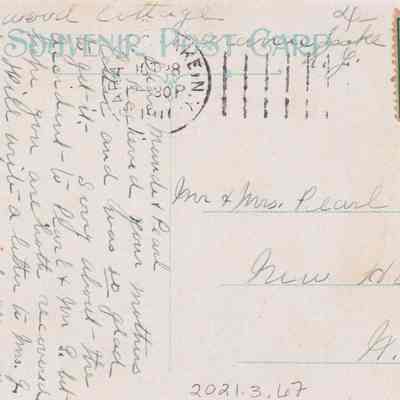 wood Cottage
SOUVENIR POST CARD
N.J.
KEIN
30P
N.Y.
Dear Maude & Pearl
Received your mothers
letter and was so glad
to get it. Sorry about the
accident to Pearl & Mr G. but
hope you are both recovered
Will write a letter to Mrs. G.
Mr & Mrs. Pearl
New H
N.
2021.3.67